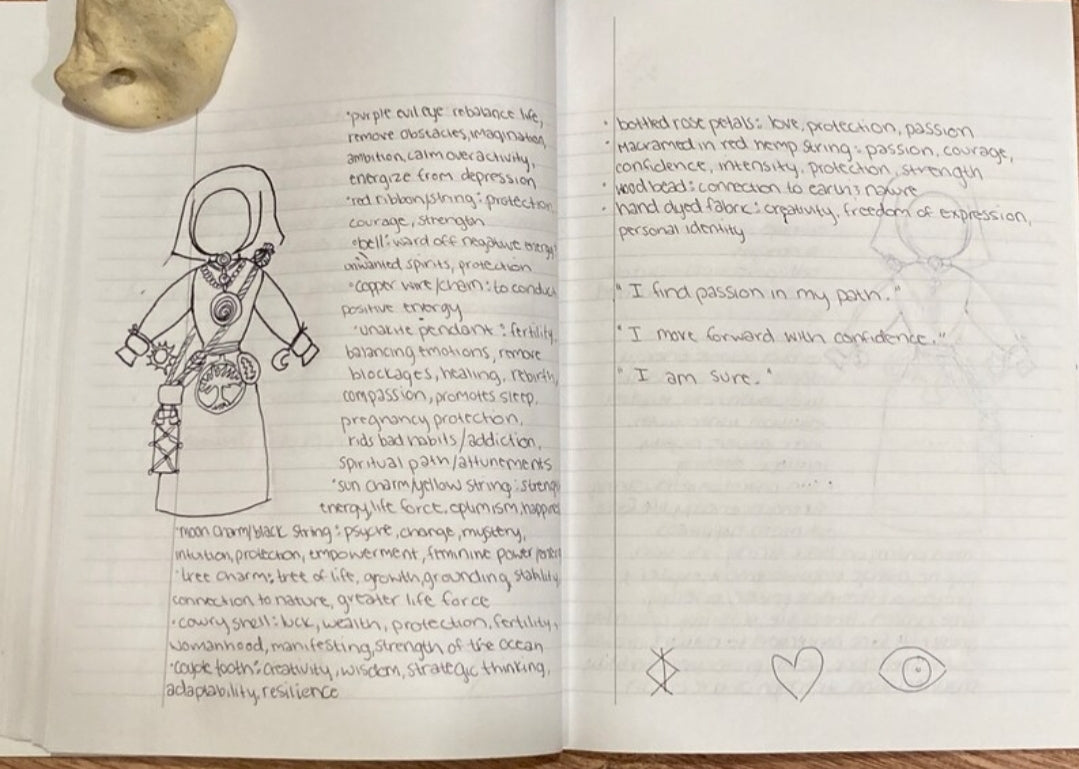 ·purple evil eye rebalance life,
remove obstacles, imagination,
ambition, calm overactivity,
energize from depression
·red ribbon/string: protection
courage, strength
·bell: ward off negative energy,
unwanted spirits, protection
·copper wire/chain: to conduct
positive energy
·unakite pendant: fertility,
balancing emotions, remove
blockages, healing, rebirth,
compassion, promotes sleep,
pregnancy protection,
rids bad habits/addiction,
spiritual path/attunements
·sun charm/yellow string:
energy, life force, optimism,
·moon charm/black string: psyche, change, mystery,
intuition, protection, empowerment, feminine power
·tree charm: tree of life, growth, grounding, stability
connection to nature, greater life force
·cowry shell: luck, wealth, protection, fertility,
womanhood, manifesting, strength of the ocean
tooth: creativity, wisdom, strategic thinking,
adaptability, resilience
· bottled rose petals: love, protection, passion
· Macramed in red hemp string: passion, courage,
confidence, intensity, protection, strength
· wood bead: connection to earth & nature
· hand dyed fabric: creativity, freedom of expression,
personal identity
"I find passion in my path."
"I move forward with confidence."
"I am sure."